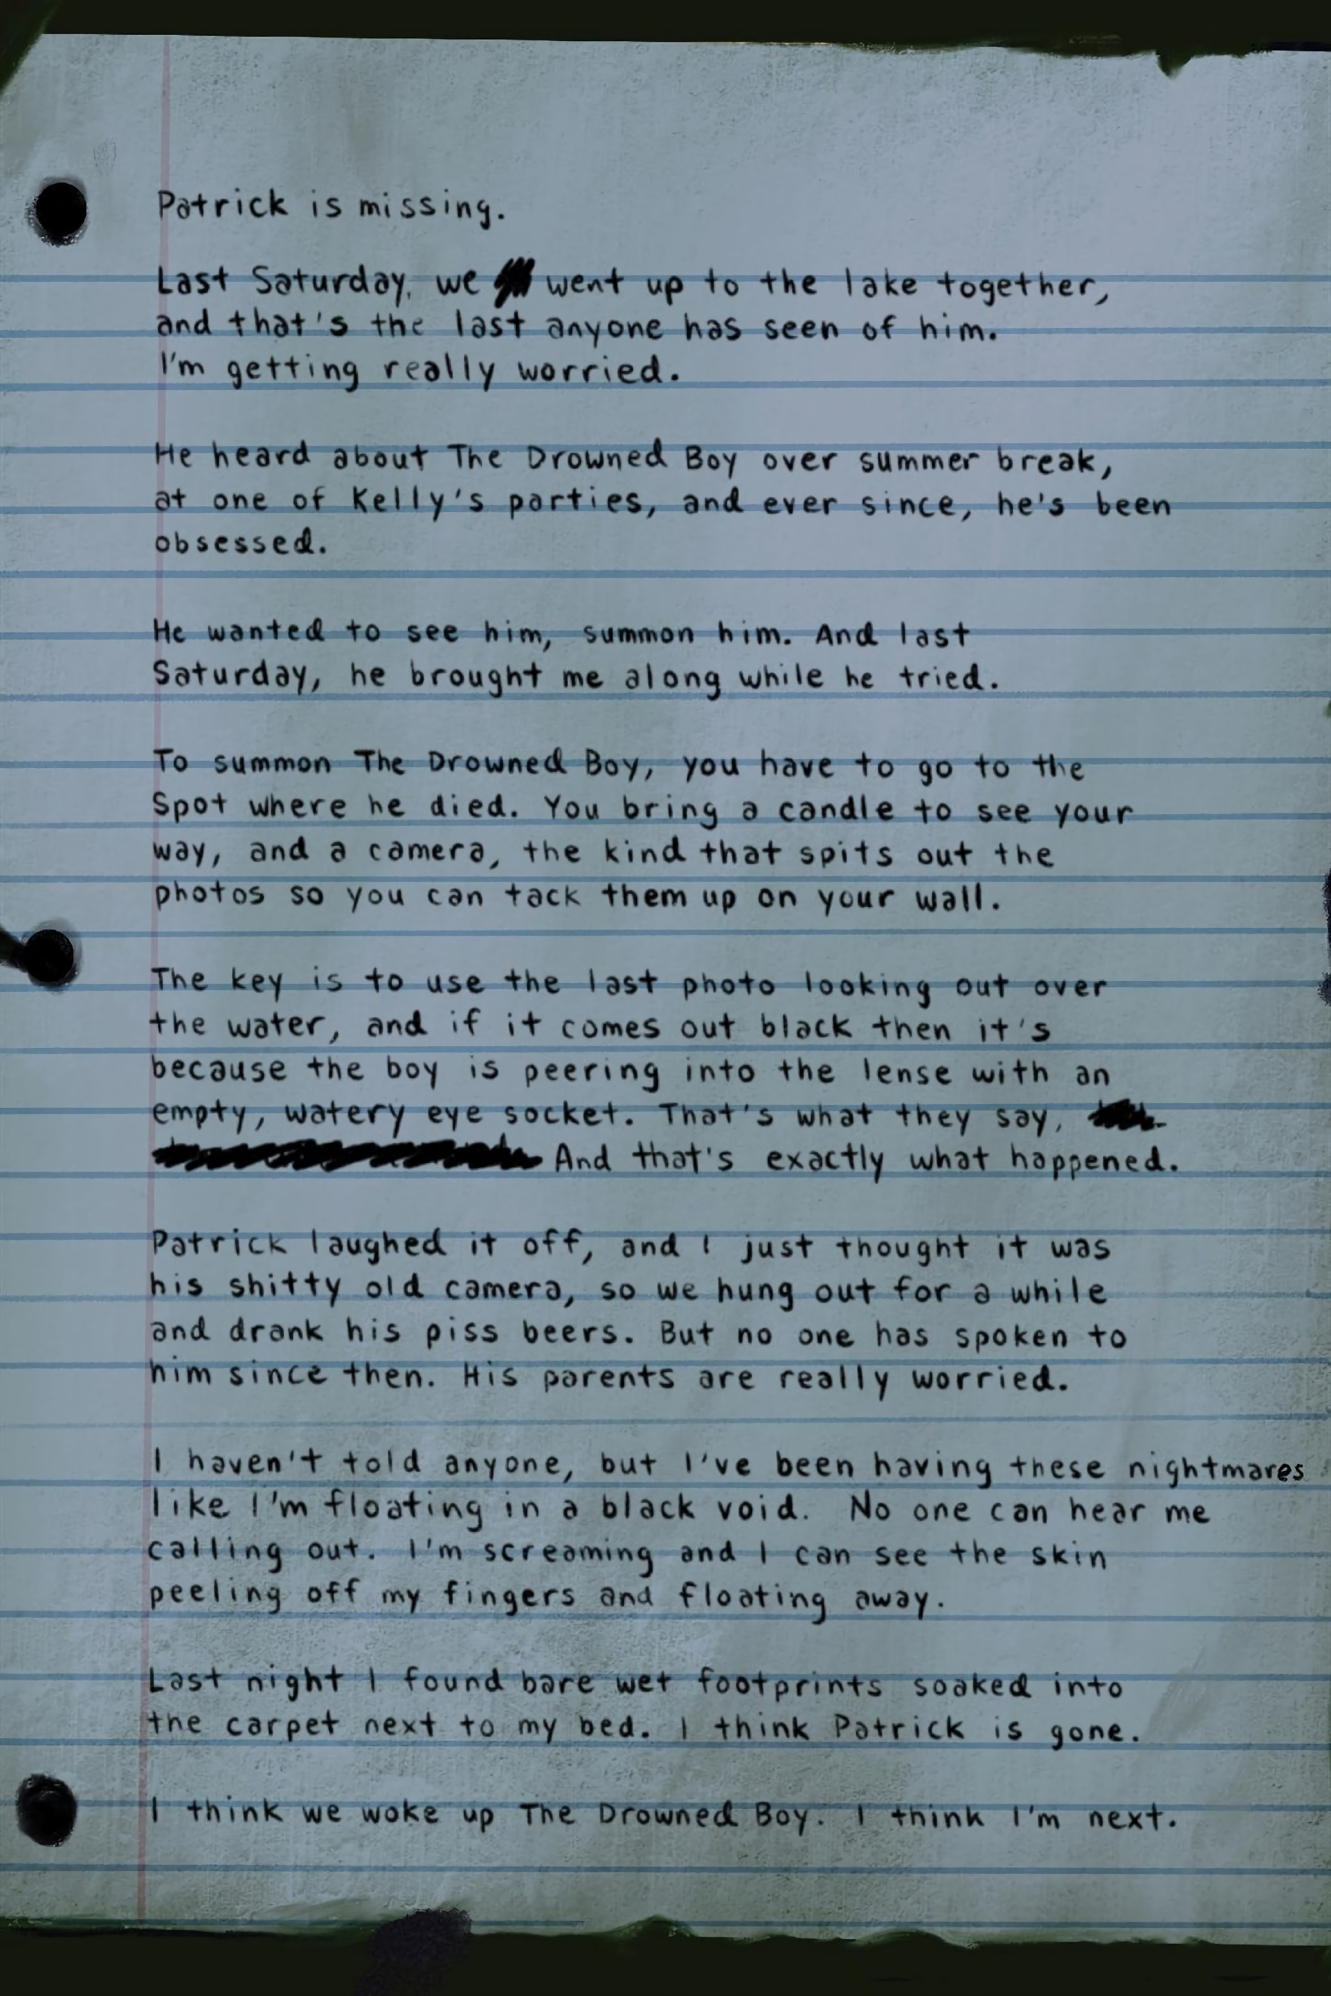 Patrick is missing.
Last Saturday, we went up to the lake together,
and that's the last anyone has seen of him.
I'm getting really worried.
He heard about The Drowned Boy over summer break,
at one of Kelly's parties, and ever since, he's been
obsessed.
He wanted to see him, summon him. And last
Saturday, he brought me along while he tried.
To summon The Drowned Boy, you have to go to the
Spot where he died. You bring a candle to see your
way, and a camera, the kind that spits out the
photos so you can tack them up on your wall.
The key is to use the last photo looking out over
the water, and if it comes out black then it's
because the boy is peering into the lense with an
empty, watery eye socket. That's what they say,
And that's exactly what happened.
Patrick laughed it off, and I just thought it was
his shitty old camera, so we hung out for a while
and drank his piss beers. But no one has spoken to
him since then. His parents are really worried.
I haven't told anyone, but I've been having these nightmares
like I'm floating in a black void. No one can hear me
calling out. I'm screaming and I can see the skin
peeling off my fingers and floating away.
Last night I found bare wet footprints soaked into
the carpet next to my bed. I think Patrick is gone.
I think we woke up The Drowned Boy. I think I'm next.